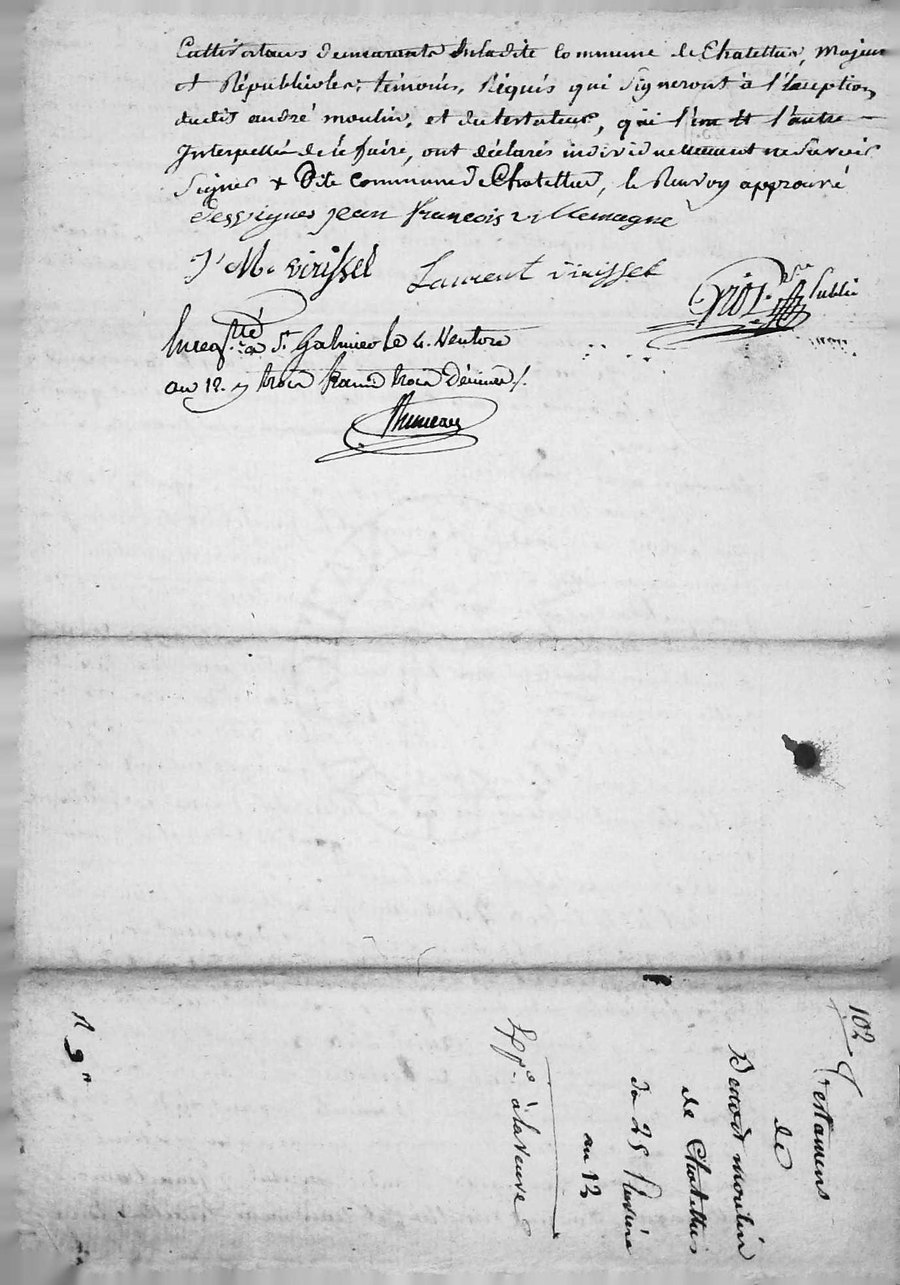 Cultivateurs demeurants en ladite Commune de Chatellus, majeurs
et Républicoles, témoins, Réquis qui signeront à l'exception
dudit andré moulin, et du testateur, qui l'un et l'autre –
Interpellé de le faire, ont déclarés individuellement ne Savoir
Signer + Dite Commune de Chatellus, le Renvoy approuvé
Jean François villemagne
J. M. virissel
Laurent virissel
Not.re Public
Enreg.tré à St. Galmier le 4. Ventose
au 12. Trois francs trois Décimes
102
Testament
de
Benoit moulin
de Chatellus
du 25 Pluviose
an 12
Exp.é à la veuve